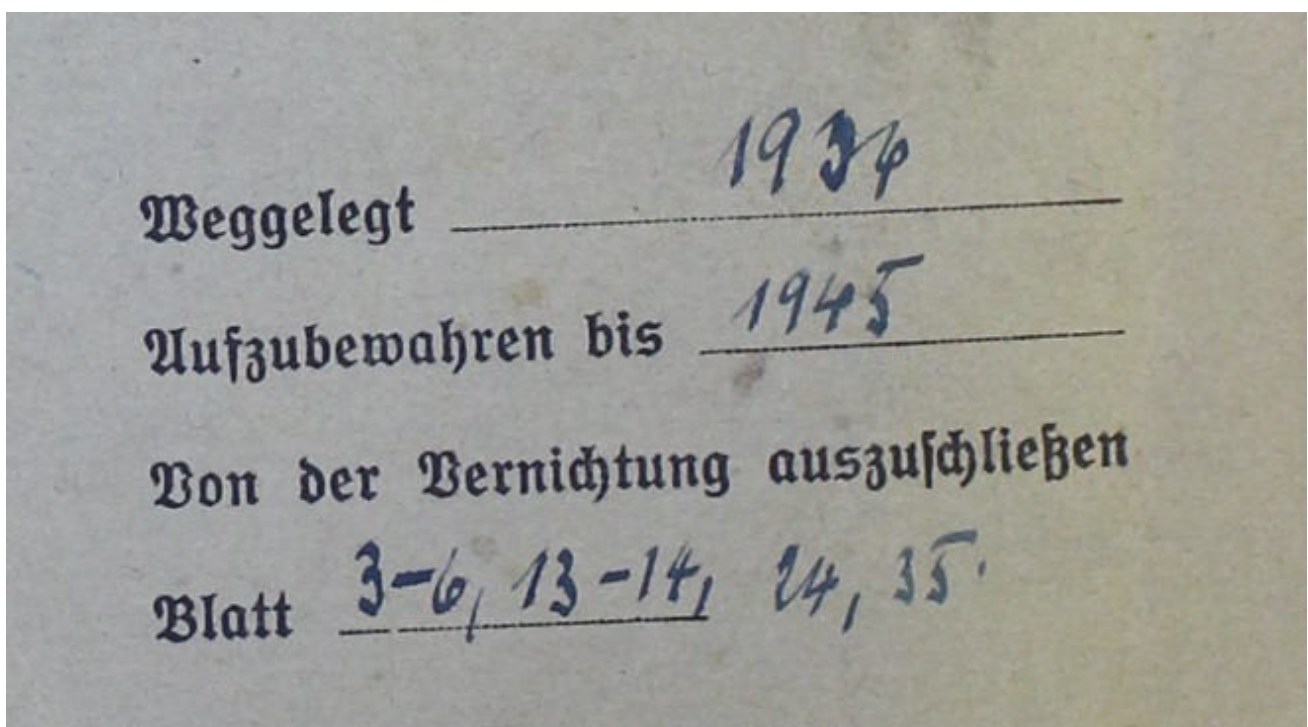 Weggelegt 1934
Aufzubewahren bis 1945
Von der Vernichtung auszuschließen
Blatt 3-6, 13-14, 24, 35.